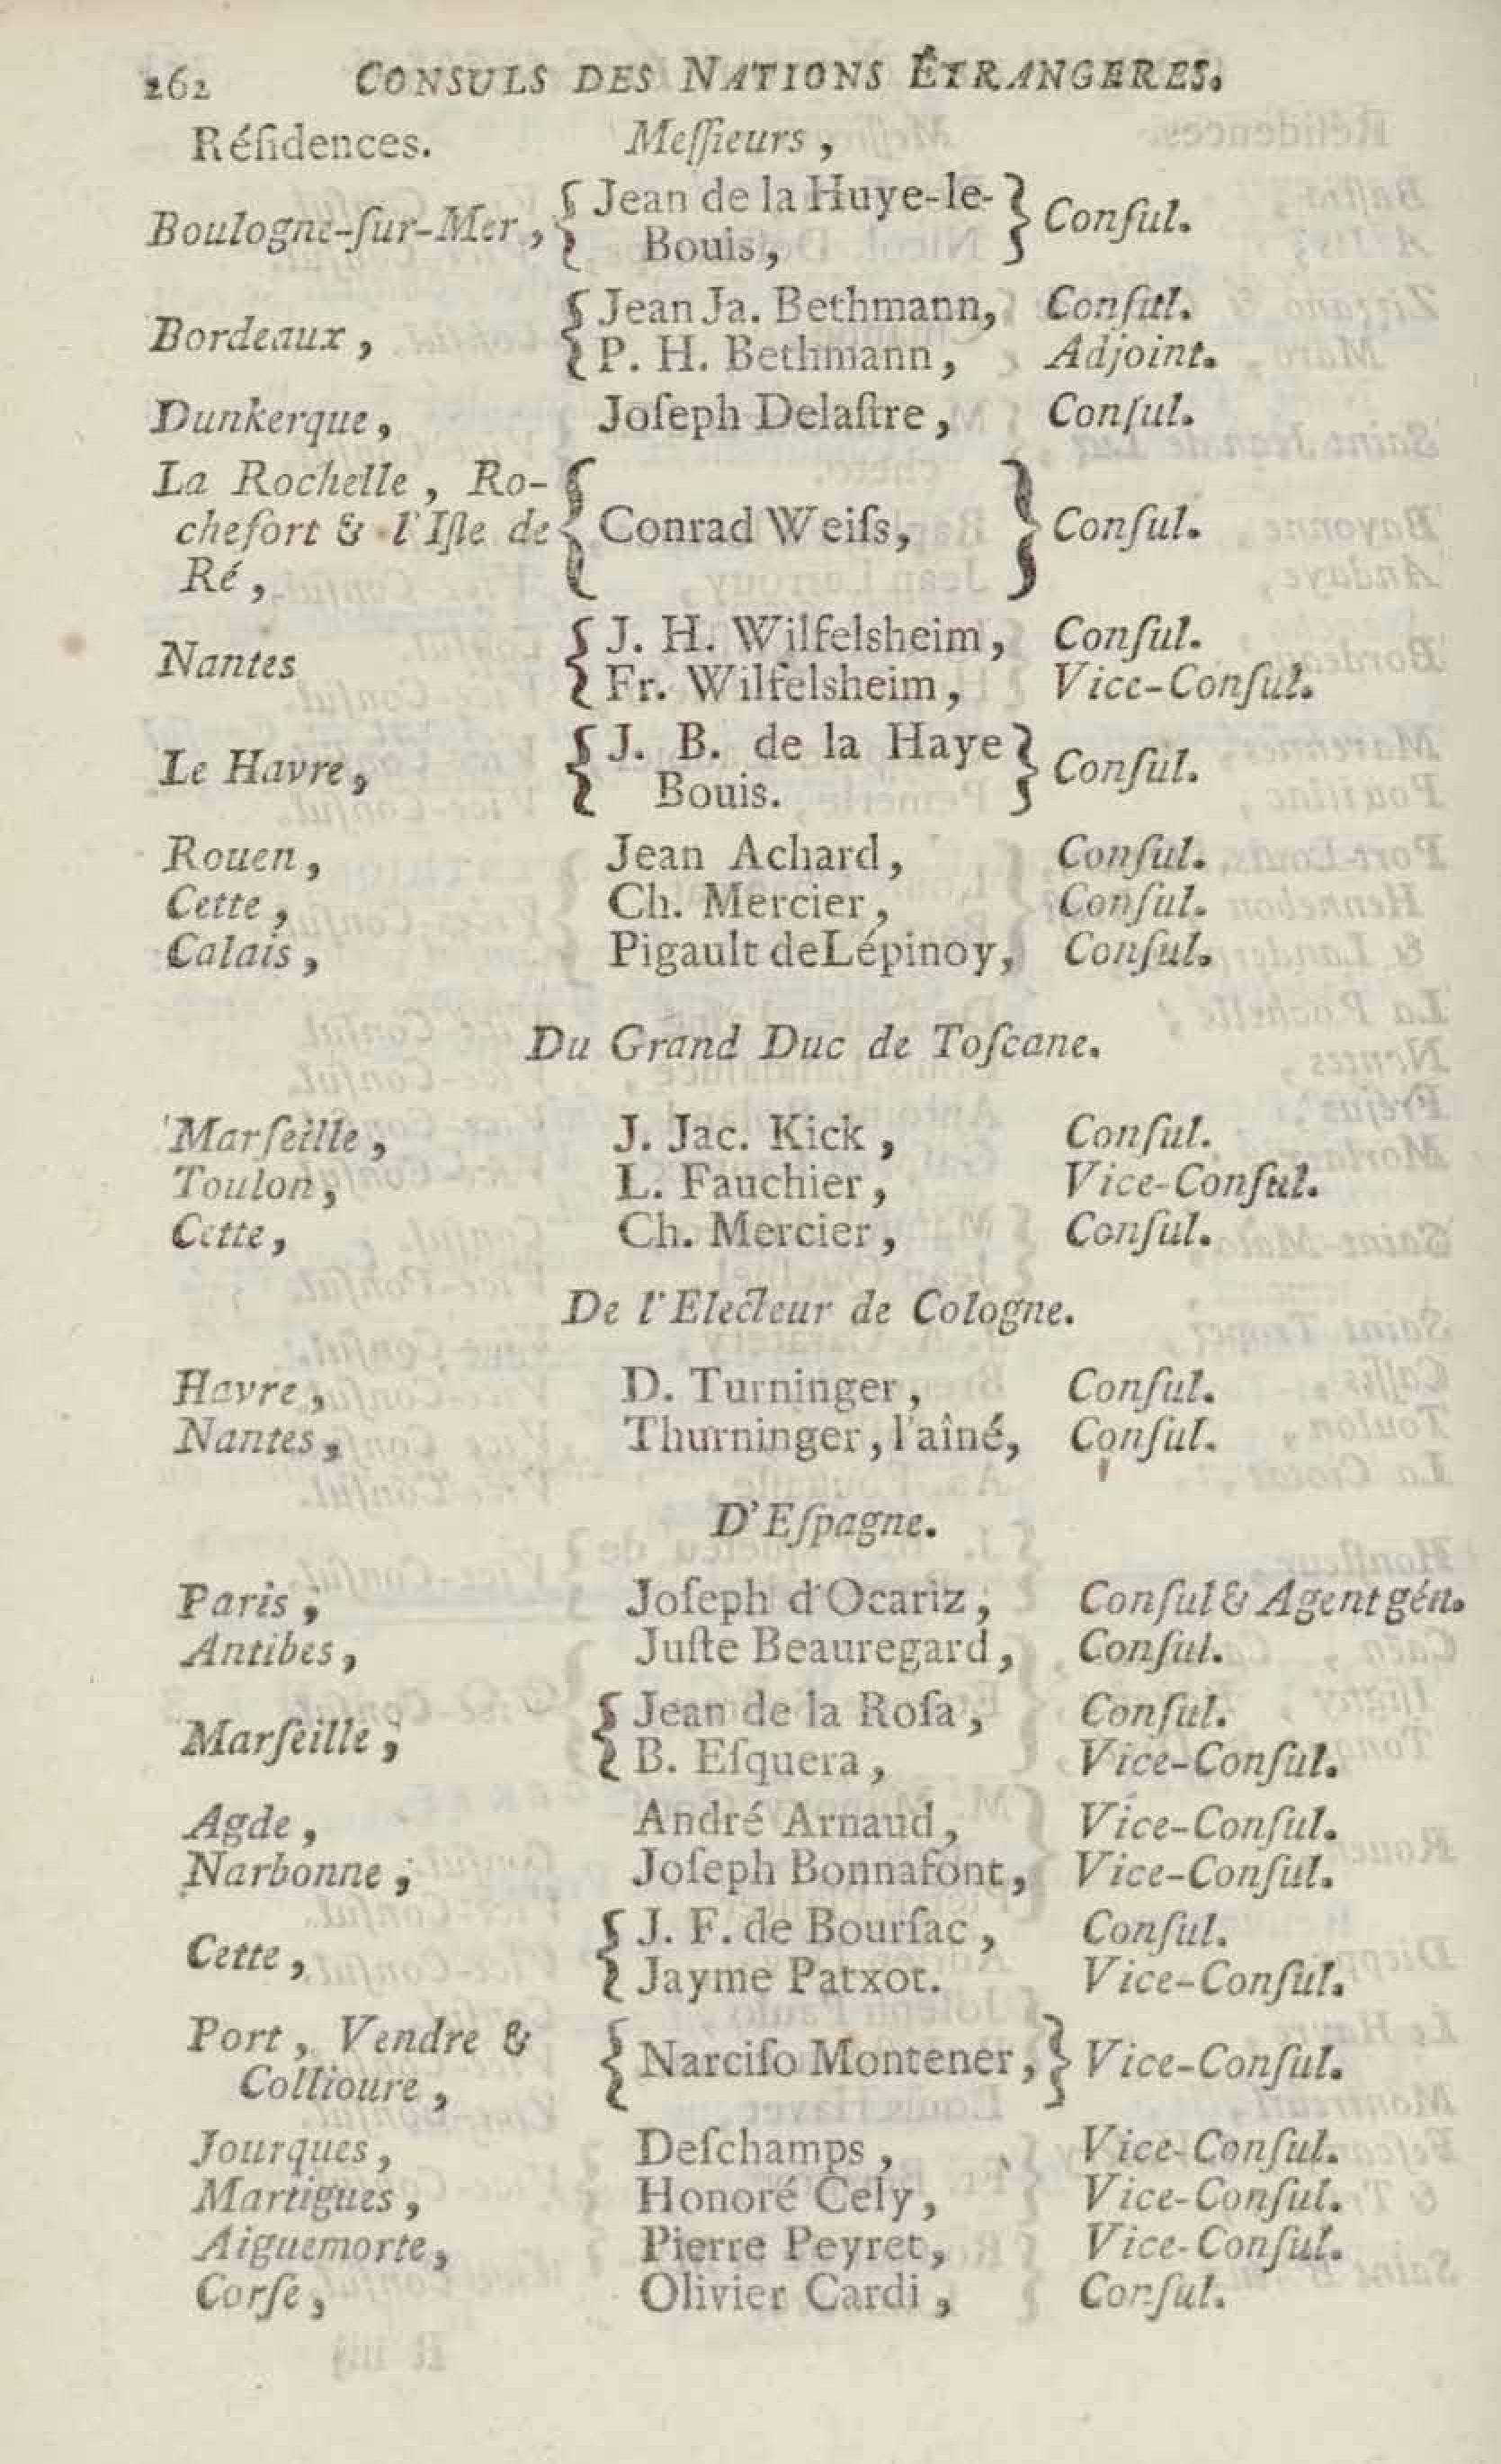 262 CONSULS DES NATIONS ÉTRANGERES.
Réſidences. Meſſieurs,
Boulogne-ſur-Mer, { Jean de la Huye-le-
Bouis, } Conſul.
Bordeaux, { Jean Ja. Bethmann, Conſul.
P. H. Bethmann, Adjoint.
Dunkerque, Joſeph Delaſtre, Conſul.
La Rochelle, Ro-
chefort & l'Iſle de
Ré, { Conrad Weiſs, } Conſul.
Nantes { J. H. Wilfelsheim, Conſul.
Fr. Wilfelsheim, Vice-Conſul.
Le Havre, { J. B. de la Haye
Bouis. } Conſul.
Rouen, Jean Achard, Conſul.
Cette, Ch. Mercier, Conſul.
Calais, Pigault de Lépinoy, Conſul.
Du Grand Duc de Toſcane.
Marſeille, J. Jac. Kick, Conſul.
Toulon, L. Fauchier, Vice-Conſul.
Cette, Ch. Mercier, Conſul.
De l'Electeur de Cologne.
Havre, D. Turninger, Conſul.
Nantes, Thurninger, l'aîné, Conſul.
D'Eſpagne.
Paris, Joſeph d'Ocariz, Conſul & Agent gén.
Antibes, Juſte Beauregard, Conſul.
Marſeille, { Jean de la Roſa, Conſul.
B. Eſquera, Vice-Conſul.
Agde, André Arnaud, Vice-Conſul.
Narbonne, Joſeph Bonnafont, Vice-Conſul.
Cette, { J. F. de Bourſac, Conſul.
Jayme Patxot. Vice-Conſul.
Port, Vendre &
Collioure, { Narciſo Montener, } Vice-Conſul.
Jourques, Deſchamps, Vice-Conſul.
Martigues, Honoré Cely, Vice-Conſul.
Aiguemorte, Pierre Peyret, Vice-Conſul.
Corſe, Olivier Cardi, Conſul.